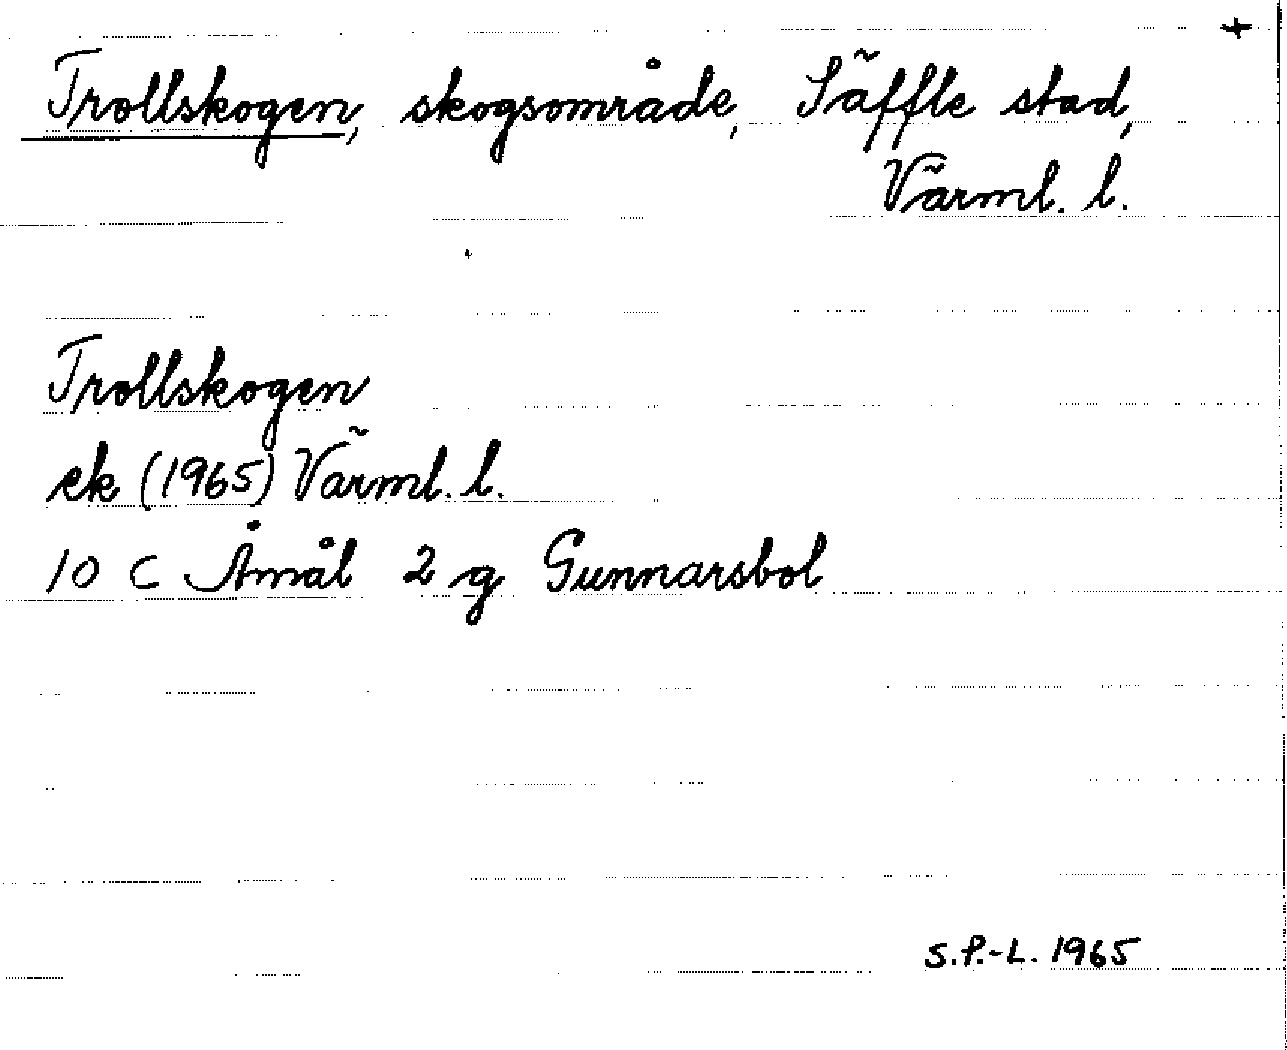 +
Trollskogen, skogsområde, Säffle stad,
Värml. l.
Trollskogen
ek (1965) Värml. l.
10 C Åmål 2 g Gunnarsbol
S.P.-L. 1965